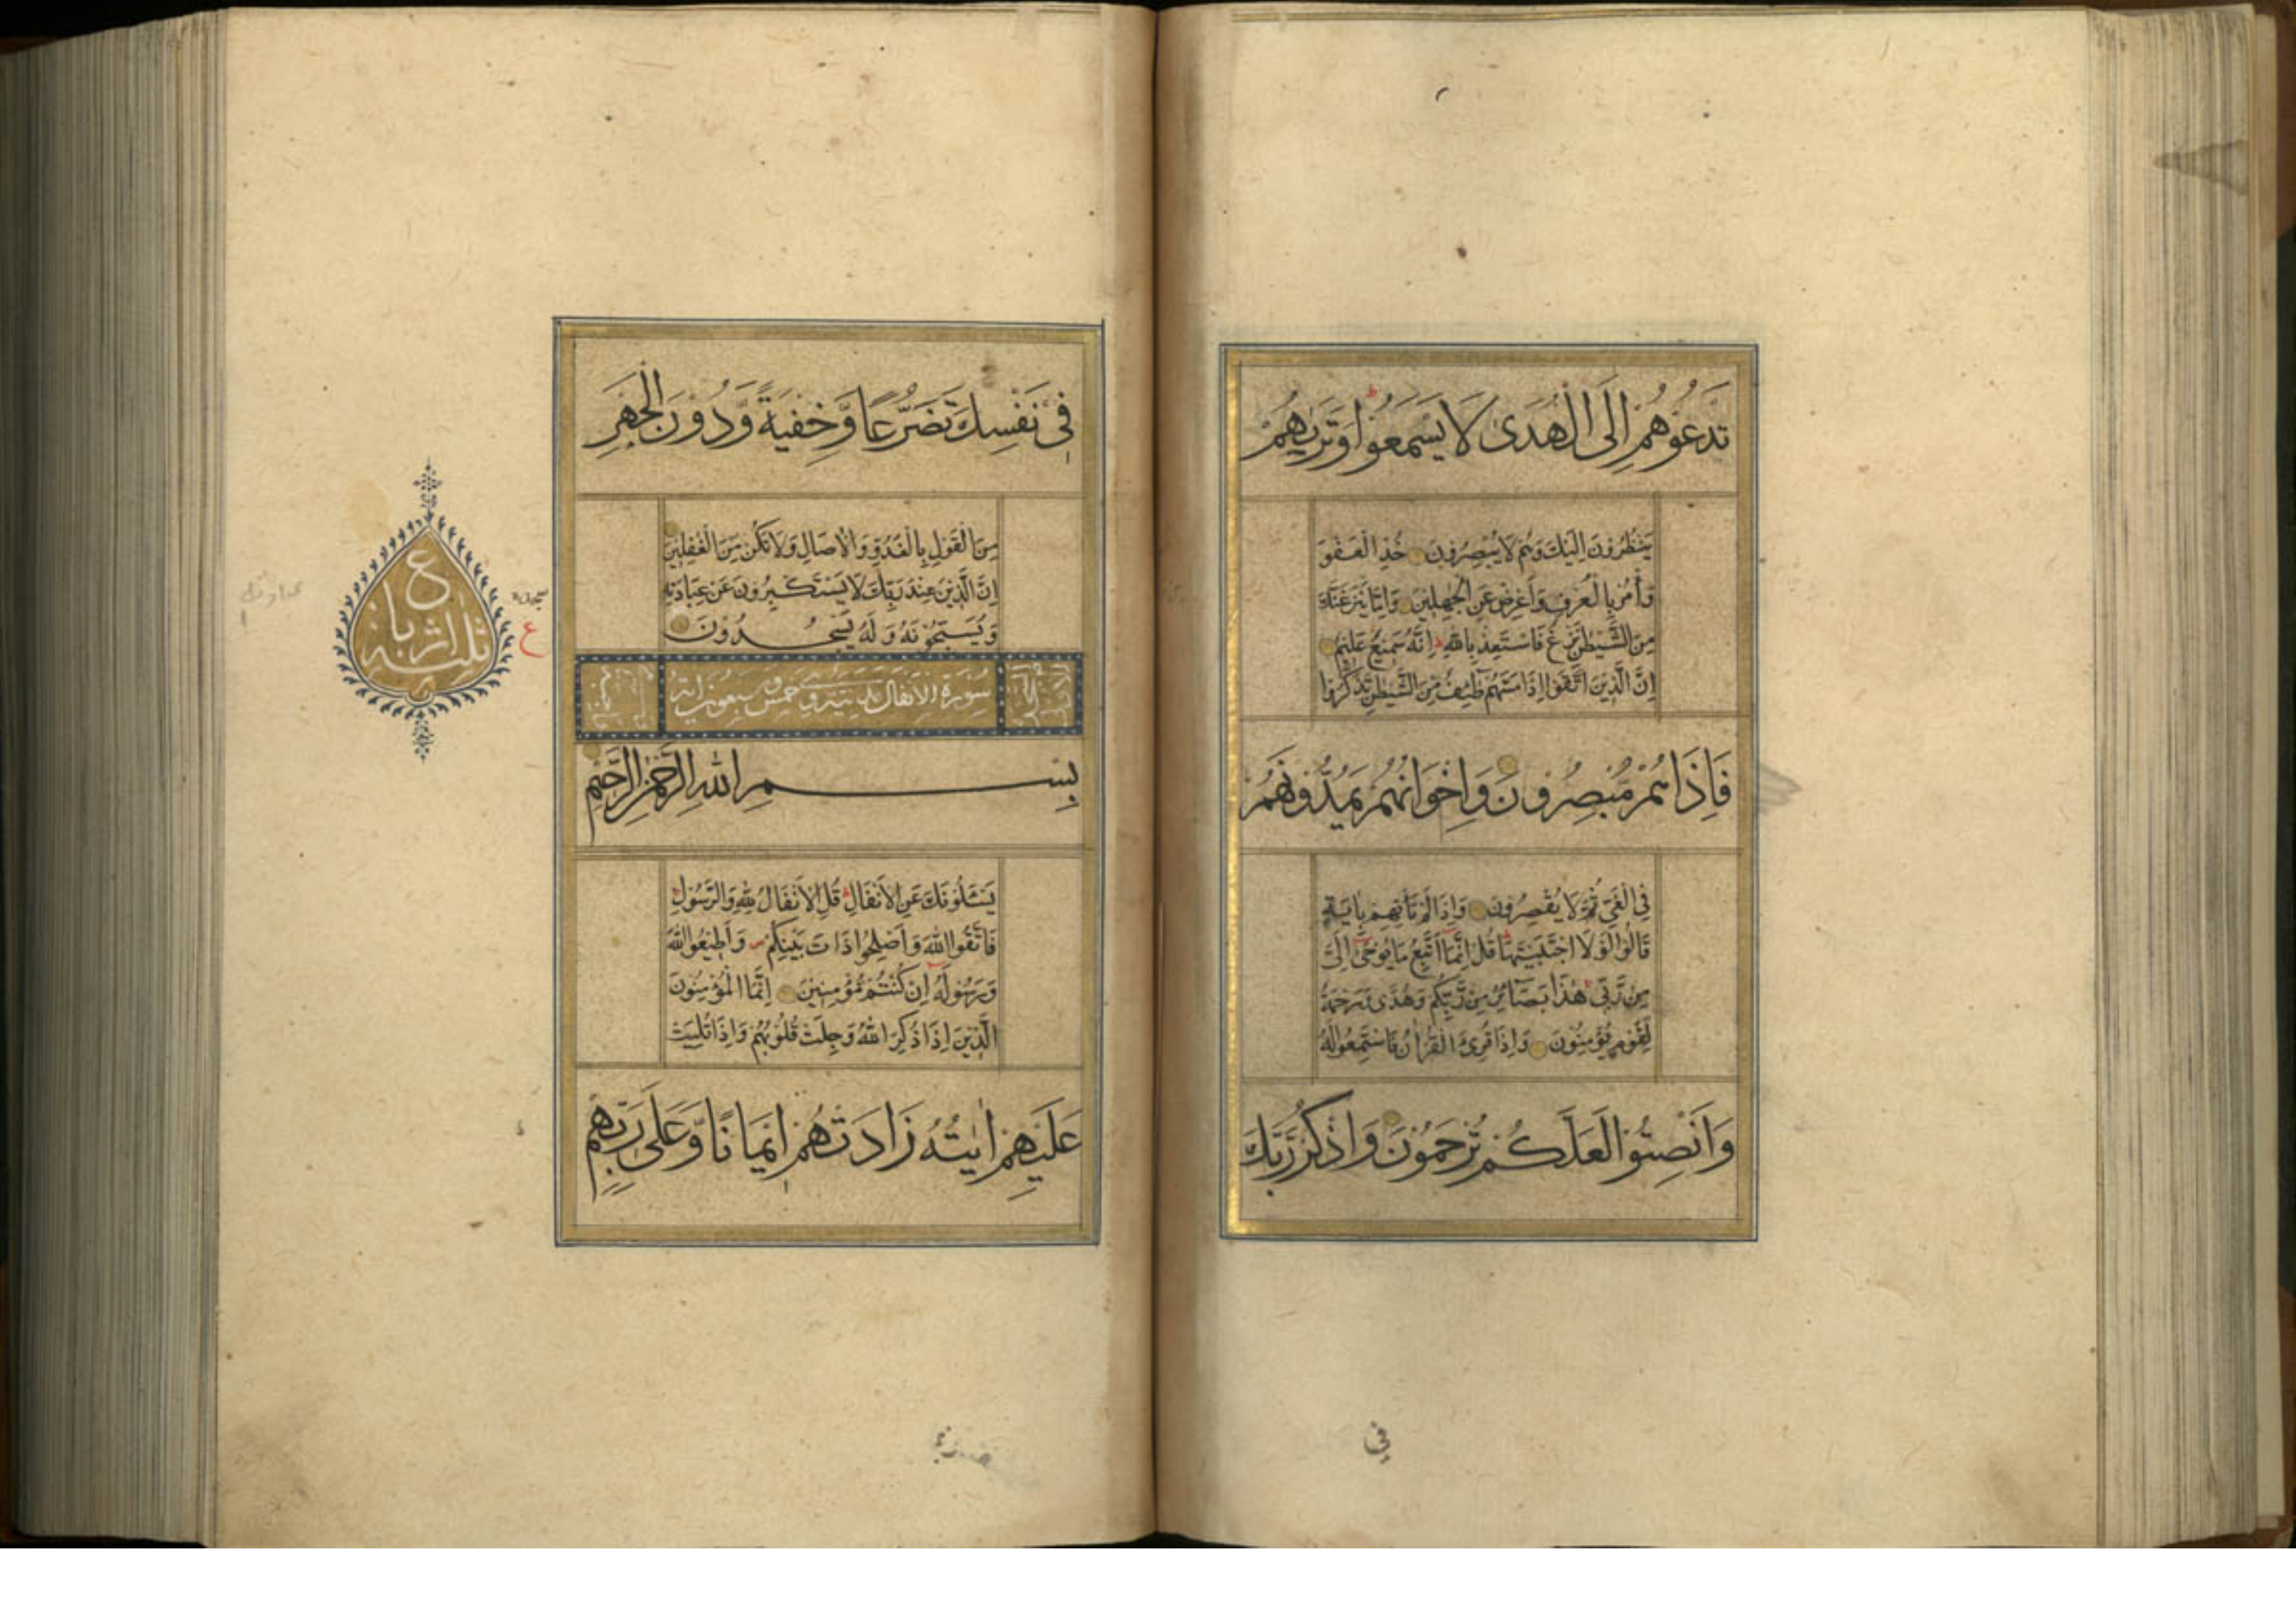 تَدْعُوهُمْ اِلَى الْهُدٰى لَا يَسْمَعُوْا وَتَرٰىهُمْ
يَنْظُرُوْنَ اِلَيْكَ وَهُمْ لَا يُبْصِرُوْنَ خُذِ الْعَفْوَ
وَأْمُرْ بِالْعُرْفِ وَاَعْرِضْ عَنِ الْجٰهِلِيْنَ وَاِمَّا يَنْزَغَنَّكَ
مِنَ الشَّيْطٰنِ نَزْغٌ فَاسْتَعِذْ بِاللّٰهِ اِنَّهُ سَمِيْعٌ عَلِيْمٌ
اِنَّ الَّذِيْنَ اتَّقَوْا اِذَا مَسَّهُمْ طٰئِفٌ مِّنَ الشَّيْطٰنِ تَذَكَّرُوْا
فَاِذَا هُمْ مُّبْصِرُوْنَ وَاِخْوَانُهُمْ يَمُدُّوْنَهُمْ
فِى الْغَىِّ ثُمَّ لَا يُقْصِرُوْنَ وَاِذَا لَمْ تَأْتِهِمْ بِاٰيَةٍ
قَالُوْا لَوْلَا اجْتَبَيْتَهَا قُلْ اِنَّمَا اَتَّبِعُ مَا يُوْحٰى اِلَىَّ
مِنْ رَّبِّى هٰذَا بَصَائِرُ مِنْ رَّبِّكُمْ وَهُدًى وَّرَحْمَةٌ
لِّقَوْمٍ يُّؤْمِنُوْنَ وَاِذَا قُرِئَ الْقُرْاٰنُ فَاسْتَمِعُوْا لَهُ
وَاَنْصِتُوْا لَعَلَّكُمْ تُرْحَمُوْنَ وَاذْكُرْ رَّبَّكَ
فى
فِىْ نَفْسِكَ تَضَرُّعًا وَّخِفْيَةً وَّدُوْنَ الْجَهْرِ
مِنَ الْقَوْلِ بِالْغُدُوِّ وَالْاٰصَالِ وَلَا تَكُنْ مِّنَ الْغٰفِلِيْنَ
اِنَّ الَّذِيْنَ عِنْدَ رَبِّكَ لَا يَسْتَكْبِرُوْنَ عَنْ عِبَادَتِهِ
وَيُسَبِّحُوْنَهُ وَلَهُ يَسْجُدُوْنَ
سجده
ع
ع
ثلثة ارباع
سُوْرَةُ الْاَنْفَالِ مدنية وهى خمس وسبعون اية
بِسْمِ اللّٰهِ الرَّحْمٰنِ الرَّحِيْمِ
يَسْئَلُوْنَكَ عَنِ الْاَنْفَالِ قُلِ الْاَنْفَالُ لِلّٰهِ وَالرَّسُوْلِ
فَاتَّقُوا اللّٰهَ وَاَصْلِحُوْا ذَاتَ بَيْنِكُمْ وَاَطِيْعُوا اللّٰهَ
وَرَسُوْلَهُ اِنْ كُنْتُمْ مُّؤْمِنِيْنَ اِنَّمَا الْمُؤْمِنُوْنَ
الَّذِيْنَ اِذَا ذُكِرَ اللّٰهُ وَجِلَتْ قُلُوْبُهُمْ وَاِذَا تُلِيَتْ
عَلَيْهِمْ اٰيٰتُهُ زَادَتْهُمْ اِيْمَانًا وَّعَلٰى رَبِّهِمْ